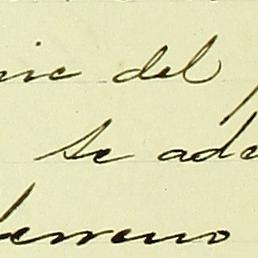 del
se ade
terreno